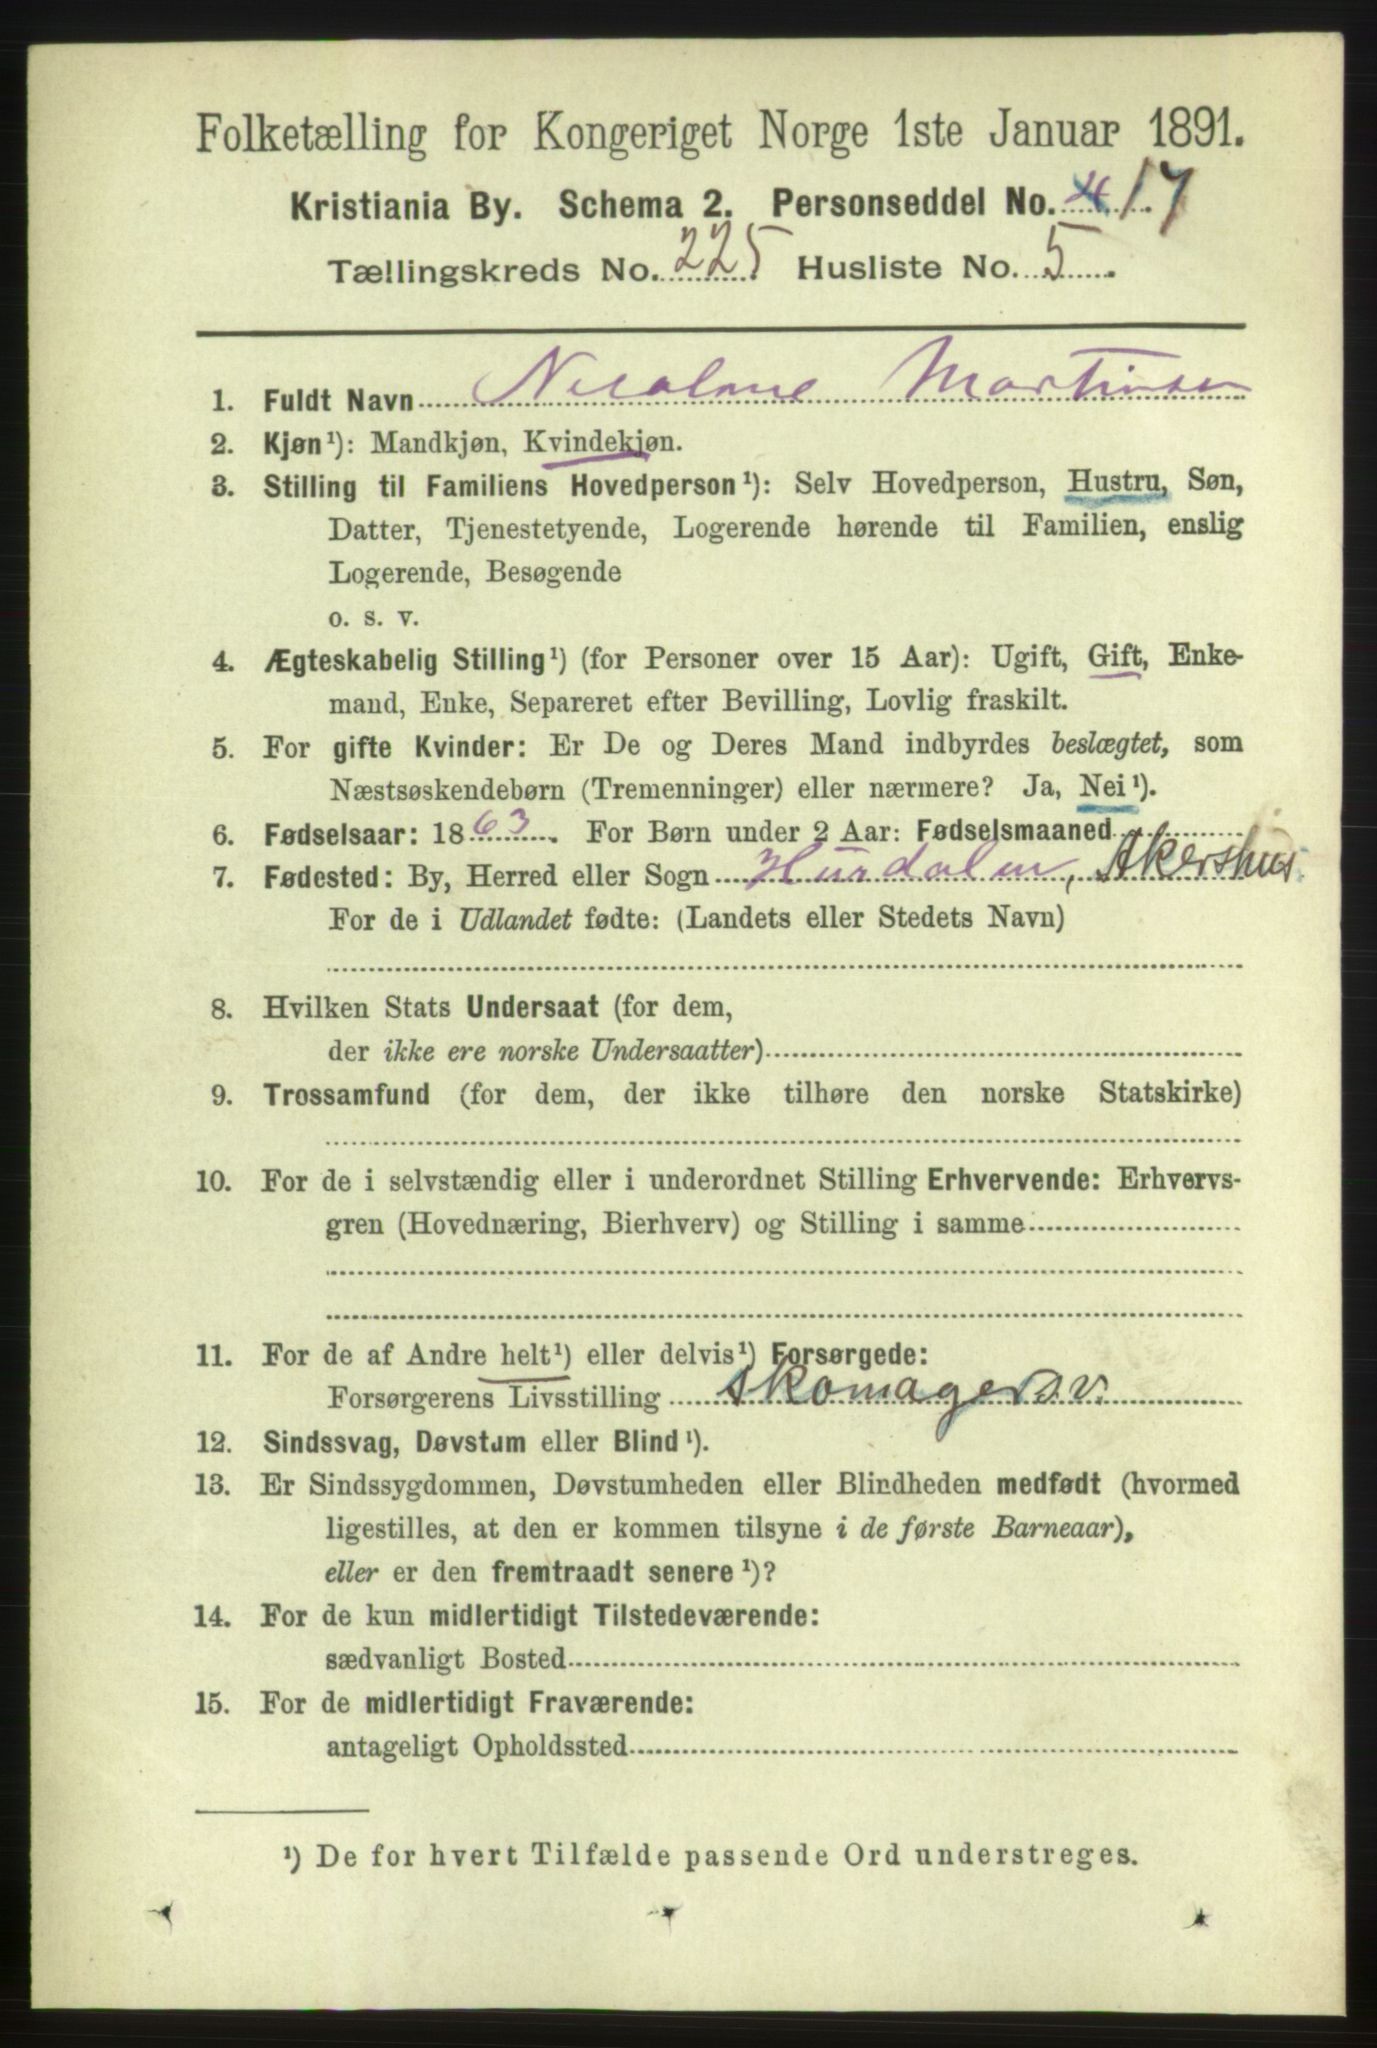 Folketælling for Kongeriget Norge 1ste Januar 1891.
Kristiania By. Schema 2. Personseddel No. 17
Tællingskreds No. 225 Husliste No. 5.
1. Fuldt Navn Nicoline Martinsen
2. Kjøn¹): Mandkjøn, Kvindekjøn.
3. Stilling til Familiens Hovedperson¹): Selv Hovedperson, Hustru, Søn,
Datter, Tjenestetyende, Logerende hørende til Familien, enslig
Logerende, Besøgende
o. s. v.
4. Ægteskabelig Stilling¹) (for Personer over 15 Aar): Ugift, Gift, Enke-
mand, Enke, Separeret efter Bevilling, Lovlig fraskilt.
5. For gifte Kvinder: Er De og Deres Mand indbyrdes beslægtet, som
Næstsøskendebørn (Tremenninger) eller nærmere? Ja, Nei¹).
6. Fødselsaar: 1863. For Børn under 2 Aar: Fødselsmaaned
7. Fødested: By, Herred eller Sogn Hurdalen, Akershus.
For de i Udlandet fødte: (Landets eller Stedets Navn)
8. Hvilken Stats Undersaat (for dem,
der ikke ere norske Undersaatter)
9. Trossamfund (for dem, der ikke tilhøre den norske Statskirke)
10. For de i selvstændig eller i underordnet Stilling Erhvervende: Erhvervs-
gren (Hovednæring, Bierhverv) og Stilling i samme
11. For de af Andre helt¹) eller delvis¹) Forsørgede:
Forsørgerens Livsstilling Skomagersv.
12. Sindssvag, Døvstum eller Blind¹).
13. Er Sindssygdommen, Døvstumheden eller Blindheden medfødt (hvormed
ligestilles, at den er kommen tilsyne i de første Barneaar),
eller er den fremtraadt senere¹)?
14. For de kun midlertidigt Tilstedeværende:
sædvanligt Bosted
15. For de midlertidigt Fraværende:
antageligt Opholdssted
¹) De for hvert Tilfælde passende Ord understreges.